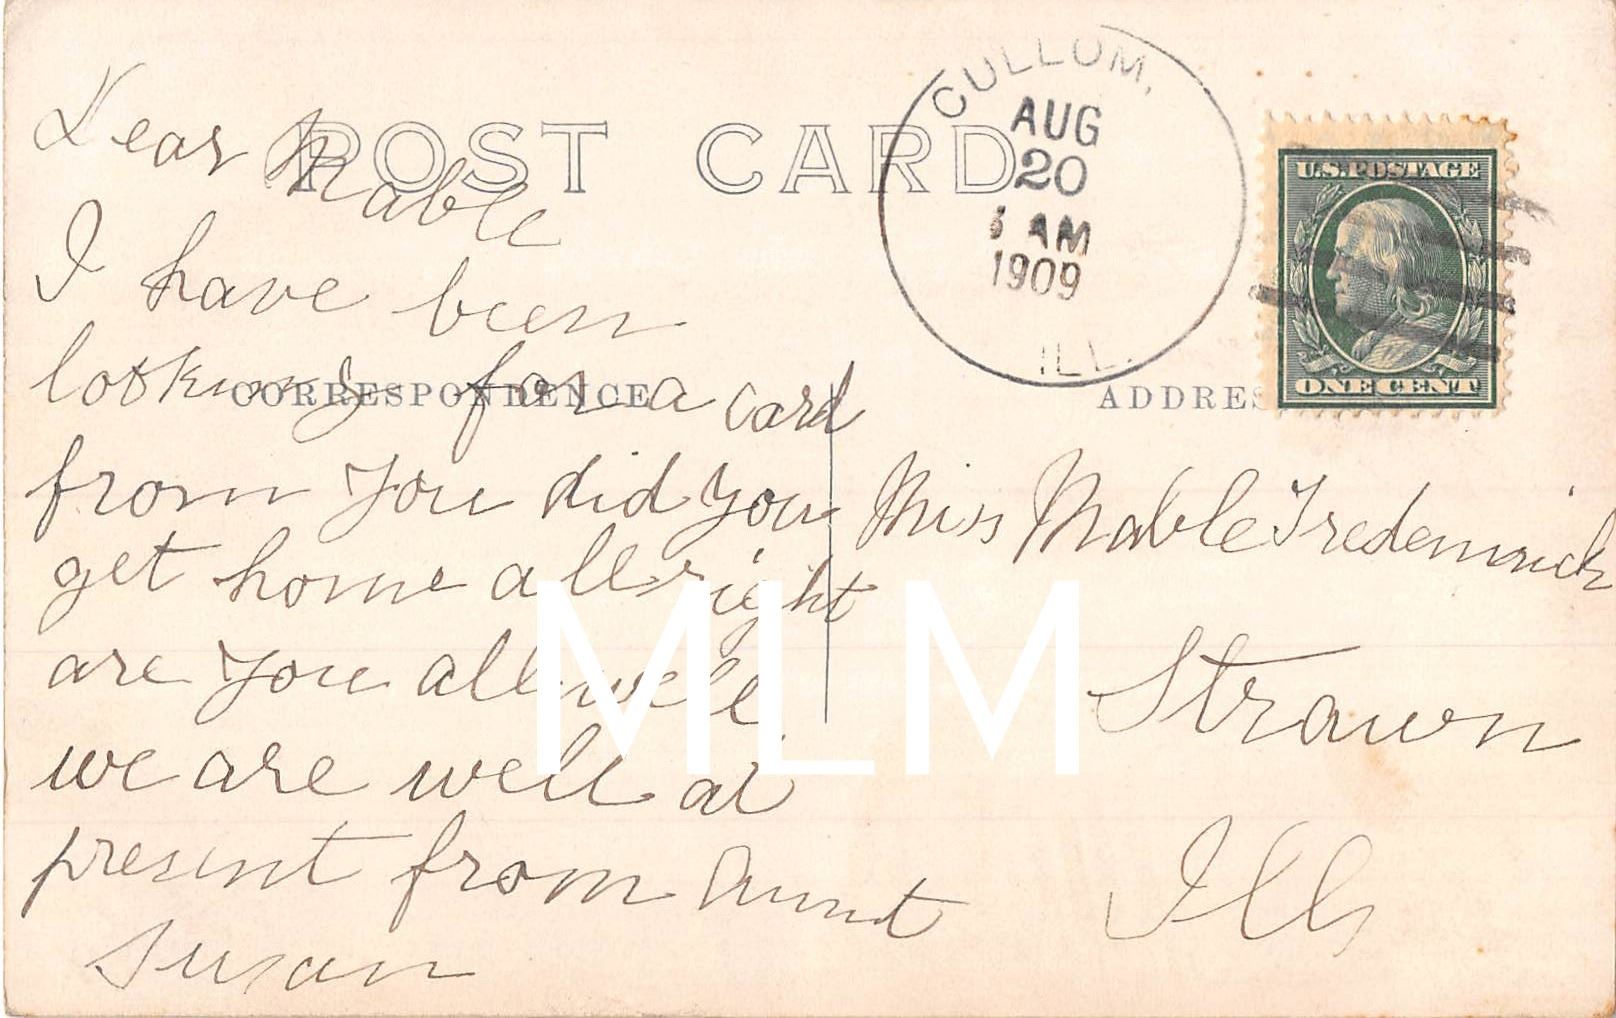 POST CARD
CULLUM,
AUG
20
AM
1909
ILL.
U.S. POSTAGE
ONE CENT
CORRESPONDENCE
ADDRES
Dear Mable
I have been
looking for a card
from you did you
get home all right
are you all well
we are well at
present from Aunt
Susan
Miss Mable
Strawn
Ills
MLM